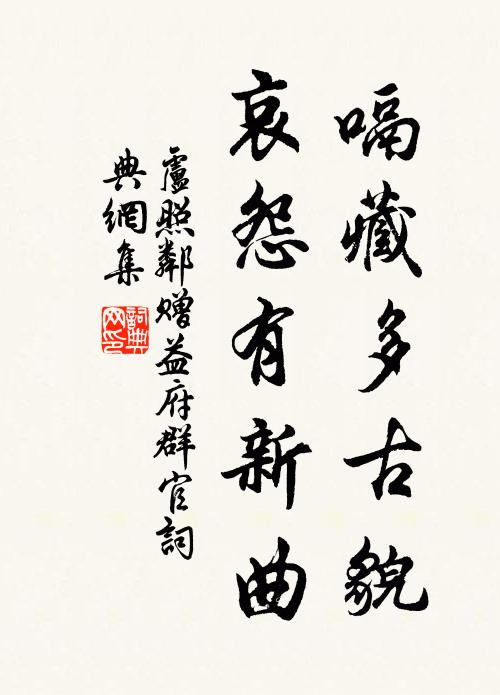 嗝藏多古貌
哀怨有新曲
盧照鄰贈益府群官詞
典網集
詞典
网印